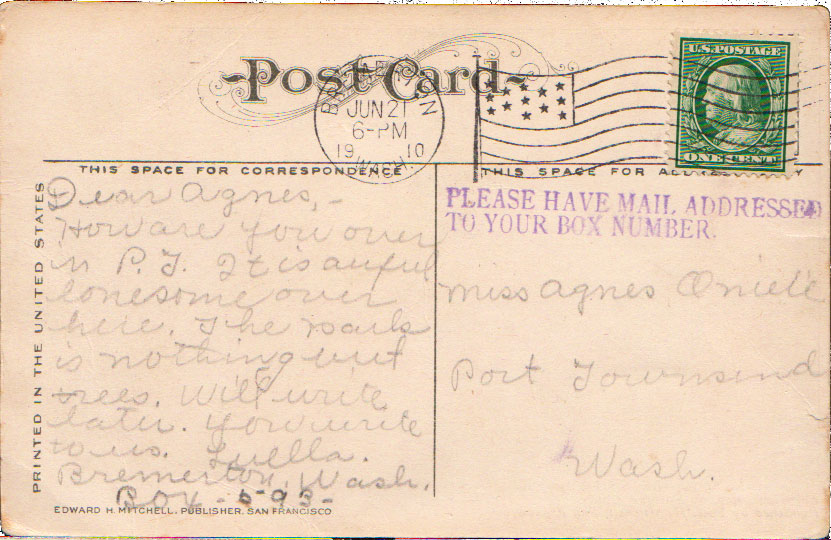 Post Card
BREMERTON
JUN 21
6-PM
1910
WASH.
U.S. POSTAGE
ONE CENT
THIS SPACE FOR CORRESPONDENCE
THIS SPACE FOR
PLEASE HAVE MAIL ADDRESSED
TO YOUR BOX NUMBER.
PRINTED IN THE UNITED STATES
Dear Agnes,-
How are you over
in P. T. It is awful
lonesome over
here. The
is nothing but
trees. Will write
later. You write
to us. Luella.
Bremerton, Wash.
Box - 593-
Miss Agnes
Port Townsend
Wash.
EDWARD H. MITCHELL, PUBLISHER, SAN FRANCISCO